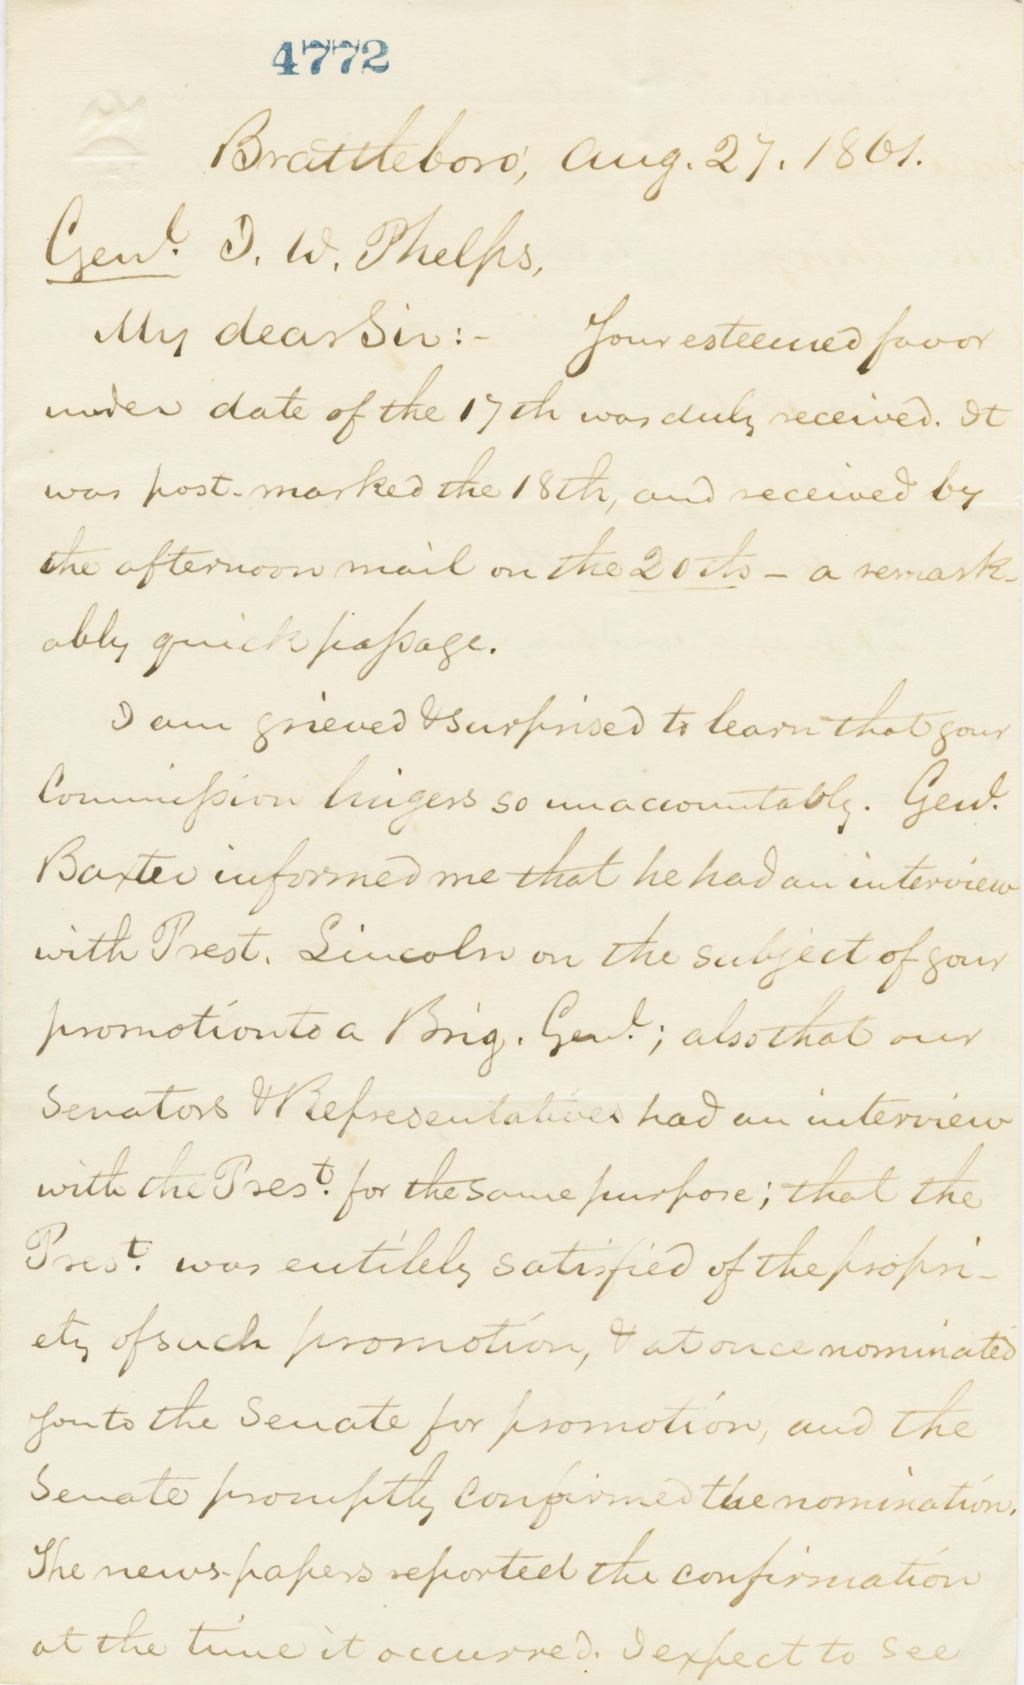 4772
Brattleboro, Aug. 27. 1861.
Genl. J. W. Phelps,
My dear Sir:- Your esteemed favor
under date of the 17th was duly received. It
was post-marked the 18th, and received by
the afternoon mail on the 20th - a remark-
ably quick passage.
I am grieved & surprised to learn that your
Commission lingers so unaccountably. Genl.
Baxter informed me that he had an interview
with Prest. Lincoln on the subject of your
promotion to a Brig. Genl.; also that our
Senators & Representatives had an interview
with the Prest. for the same purpose; that the
Prest. was entirely satisfied of the propri-
ety of such promotion, & at once nominated
you to the Senate for promotion, and the
Senate promptly confirmed the nomination.
The news-papers reported the confirmation
at the time it occurred. I expect to see